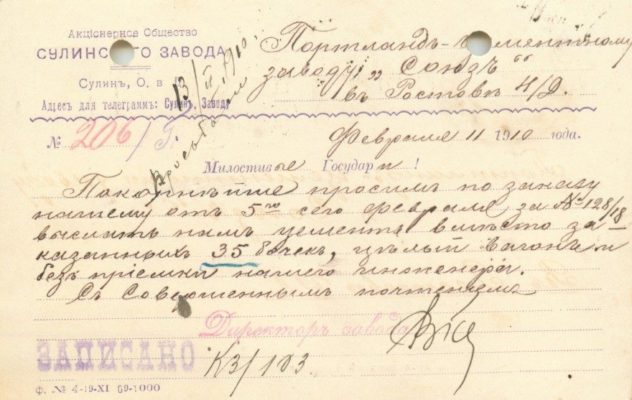 Акцiонерное Общество
СУЛИНСКОГО ЗАВОДА
Сулинъ, О. в
Адресъ для телеграмъ: Сулинъ, Заводъ
Портландъ-Цементному
заводу „Союзъ“
въ Ростовѣ н/Д.
13/II 1910.
№ 206/Г.
Февраля 11 1910 года.
Милостивые Государи!
Покорнѣйше просимъ по заказу
нашему отъ 5го сего февраля за № 128/18
выслать намъ цементъ вмѣсто за-
казанныхъ 35 бочекъ, цѣлый вагонъ и
безъ приемки нашего инженера.
Съ совершеннымъ почтенiемъ
Директоръ завода
ЗАПИСАНО
К3/103
Ф. № 4-19-XI 09-1000